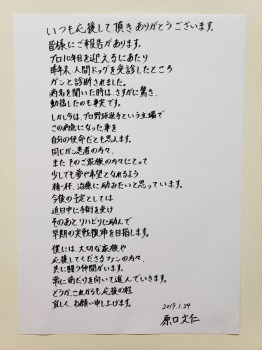 いつも応援して頂きありがとうございます。
皆様にご報告があります。
プロ10年目を迎えるにあたり
昨年末、人間ドッグを受診したところ
ガンと診断されました。
病名を聞いた時は、さすがに驚き、
動揺したのも事実です。
しかし今は、プロ野球選手という立場で
この病気になった事を
自分の使命だとも思えます。
同じガン患者の方々、
またそのご家族の方々にとって
少しでも夢や希望となれるよう
精一杯、治療に励みたいと思っています。
今後の予定としては
近日中に手術を受け
そのあとリハビリに励んで
早期の実戦復帰を目指します。
僕には、大切な家族や
応援してくださるファンの方々、
共に闘う仲間がいます。
常に前だけを向いて進んでいきます。
どうか、これからも応援の程
宜しく、お願い申し上げます。
2019.1.24
原口文仁